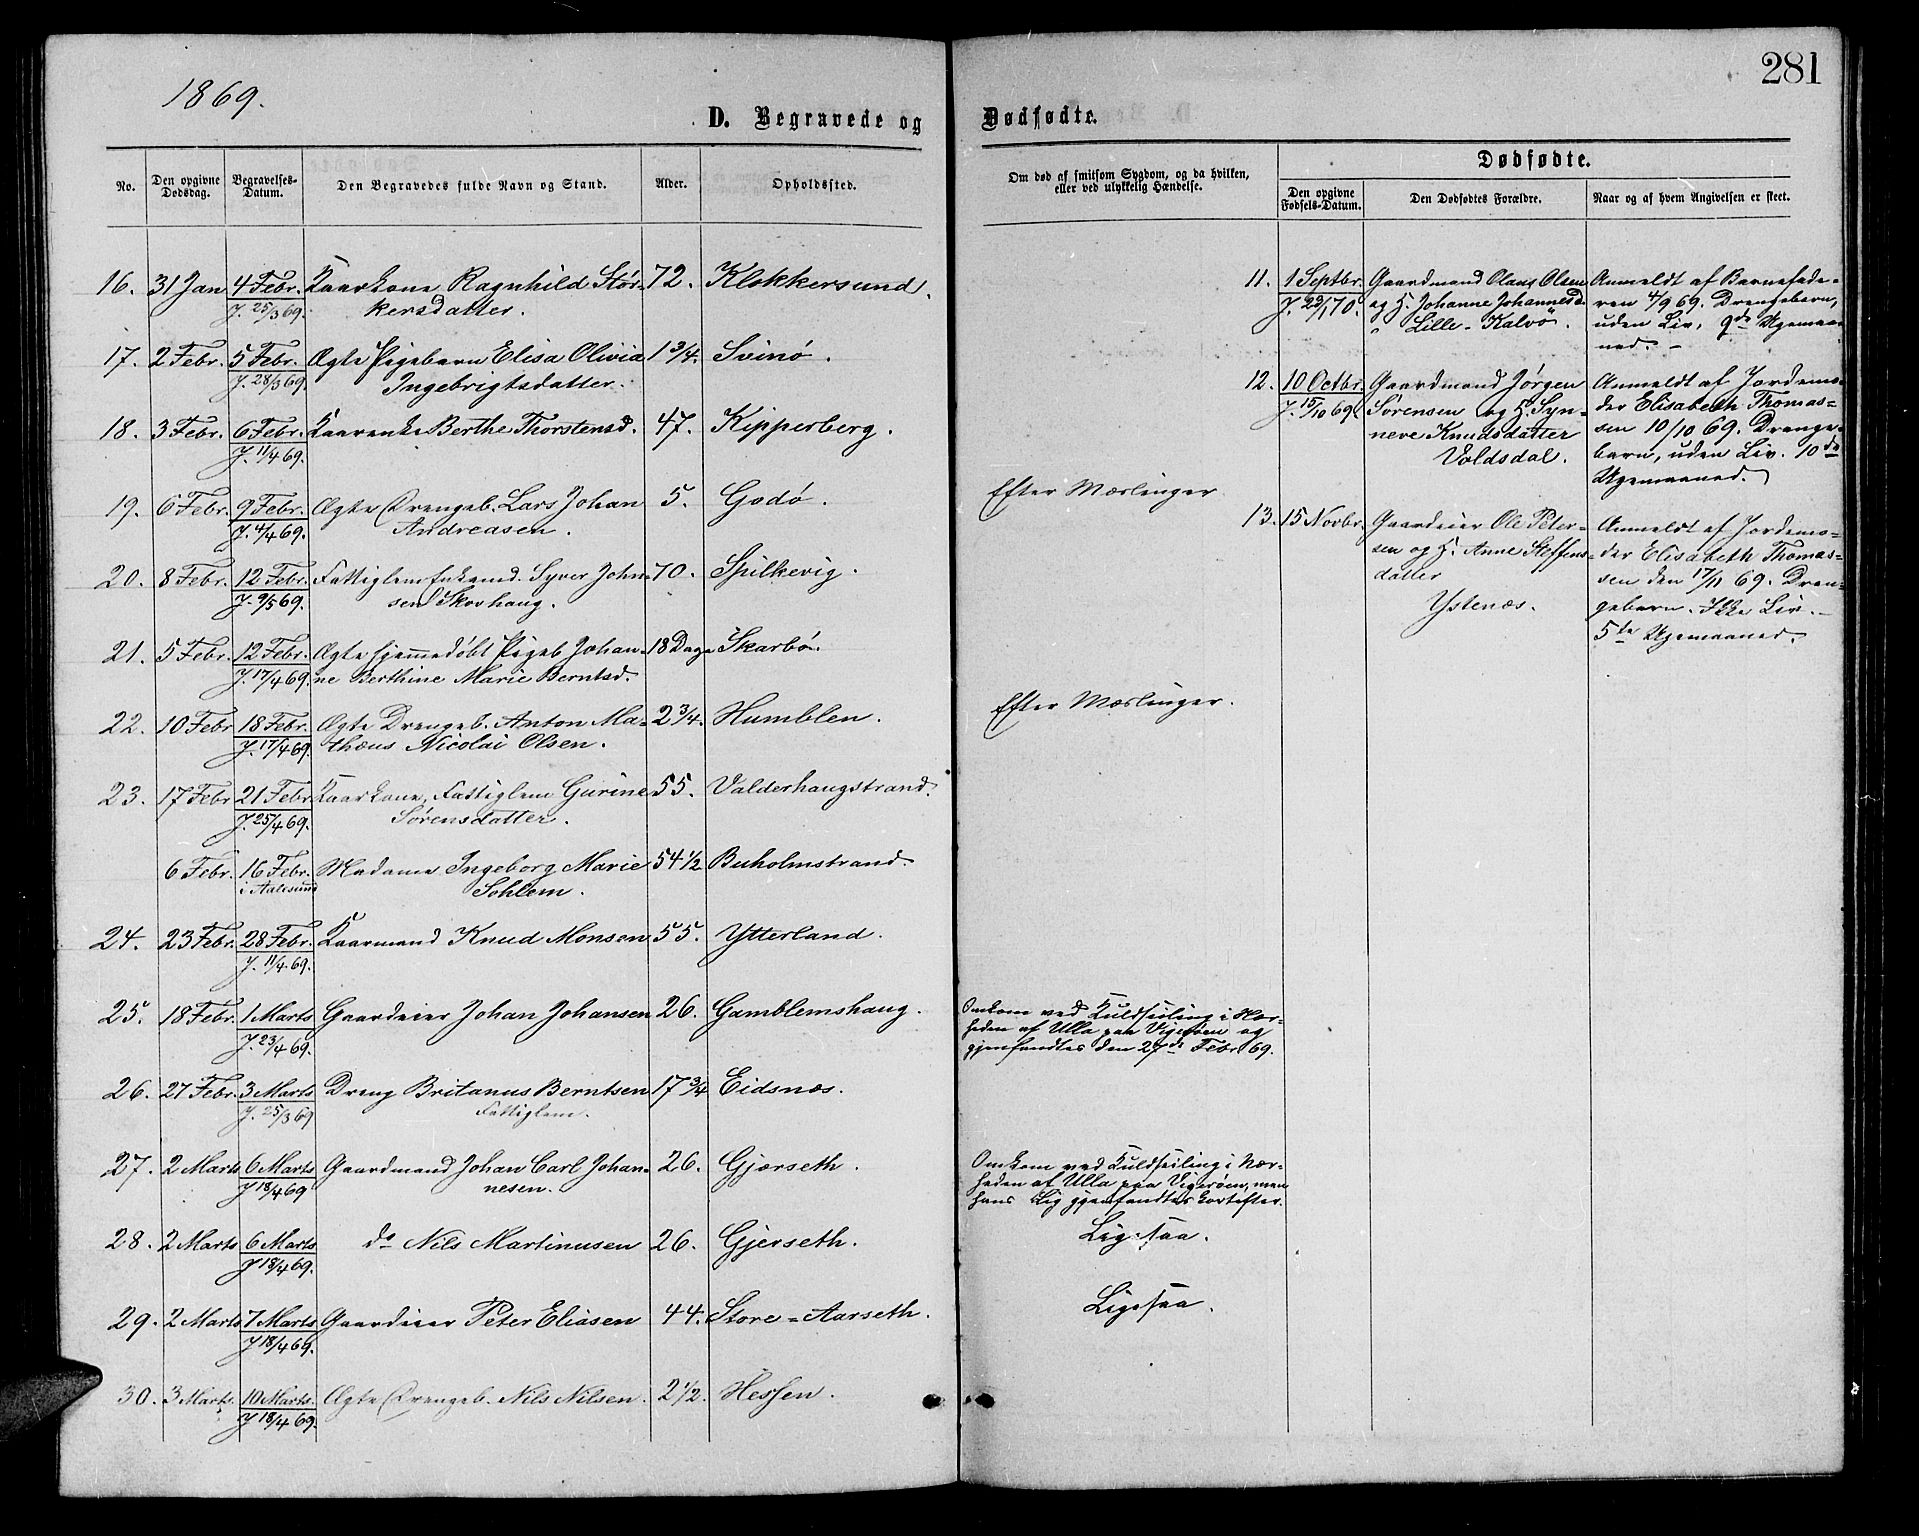 281
1869.
D. Begravede og Dødfødte.
No. Den opgivne Dødsdag. Begravelses-Datum. Den Begravedes fulde Navn og Stand. Alder. Opholdssted.
Om død af smitsom Sygdom, og da hvilken, eller ved ulykkelig Hændelse.
Dødfødte.
Den opgivne Fødsels-Datum. Den Dødfødtes Forældre. Naar og af hvem Angivelsen er skeet.
16. 31 Jan 4 Febr. Kaarkone Ragnhild Stor- 72. Klokkersund.
J. 25/3 69. kersdatter.
17. 2 Febr. 5 Febr. Ægte Pigebarn Elisa Olivia 1 3/4. Svinø.
J. 28/3 69. Ingebrigtsdatter.
18. 3 Febr. 6 Febr. Kaarenke Berthe Thorstensd. 47. Kipperberg.
J. 11/4 69.
19. 6 Febr. 9 Febr. Ægte Drengeb. Lars Johan 5. Godø. Efter Mæslinger
J. 4/4 69. Andreasen.
20. 8 Febr. 12 Febr. Fattiglem Enkemd. Syver John- 70. Spilkevig.
J. 9/5 69. sen Skovhaug.
21. 5 Febr. 12 Febr. Ægte hjemmedøbt Pigeb Johan- 18 Dage Skarbø.
J. 17/4 69. ne Berthine Marie Berntsd.
22. 10 Febr 18 Febr. Ægte Drengeb. Anton Ma- 2 3/4. Humblen. Efter Mæslinger.
J. 17/4 69. thæus Nicolai Olsen.
23. 17 Febr 21 Febr Kaarkone, Fattiglem Gurine 55. Valderhaugstrand.
J. 25/4 69. Sørensdatter.
6 Febr. 16 Febr. Madame Ingeborg Marie 54 1/2 Buholmstrand.
i Aalesund Sohlem.
24. 23 Febr. 28 Febr. Kaarmand Knud Monsen 55. Ytterland.
J. 11/4 69.
25. 18 Febr. 1 Marts Gaardeier Johan Johansen 26. Gamblemshaug. Omkom ved Kuldseiling i Nær-
J. 23/4 69. heden af Ulla paa Vigerøen og
gjenfandtes den 27de Febr 69.
26. 27 Febr. 3 Marts Dreng Britanus Berntsen 17 3/4 Eidsnæs.
J. 25/3 69 Fattiglem.
27. 2 Marts 6 Marts Gaardmand Johan Carl Johan- 26. Gjærseth. Omkom ved Kuldseiling i Nær-
J 18/4 69 nesen. heden af Ulla paa Vigerøen, men
hans Lig gjenfandtes kort efter.
28. 2 Marts 6 Marts do Nils Martinusen 26. Gjerseth. Ligesaa.
J 18/4 69.
29. 2 Marts 7 Marts Gaardeier Peter Eliasen 44. Store-Aarseth. Ligesaa.
J 18/4 69.
30. 3 Marts. 10 Marts. Ægte Drengeb. Nils Nilsen. 2 1/2. Hessen.
J 18/4 69.
11. 1 Septbr. Gaardmand Olaus Olsen Anmeldt af Barnefade-
J. 23/1 70. og H. Johanne Johannesd. ren 4/9 69. Drengebarn,
Lille-Kalvø. uden Liv, 9de Ugemaa-
ned. -
12. 10 Octbr. Gaardmand Jørgen Anmeldt af Jordemo-
J. 15/10 69. Sørensen og H. Syn- der Elisabeth Thomas-
neve Knudsdatter sen 10/10 69. Drenge-
Voldsdal. barn, uden Liv. 10de
Ugemaaned.
13. 15 Novbr. Gaardeier Ole Peter- Anmeldt af Jordemo-
sen og H. Anne Steffens- der Elisabeth Thomas-
datter sen den 17/11 69. Dren-
Ystenæs. gebarn. Ikke Liv. -
5te Ugemaaned.